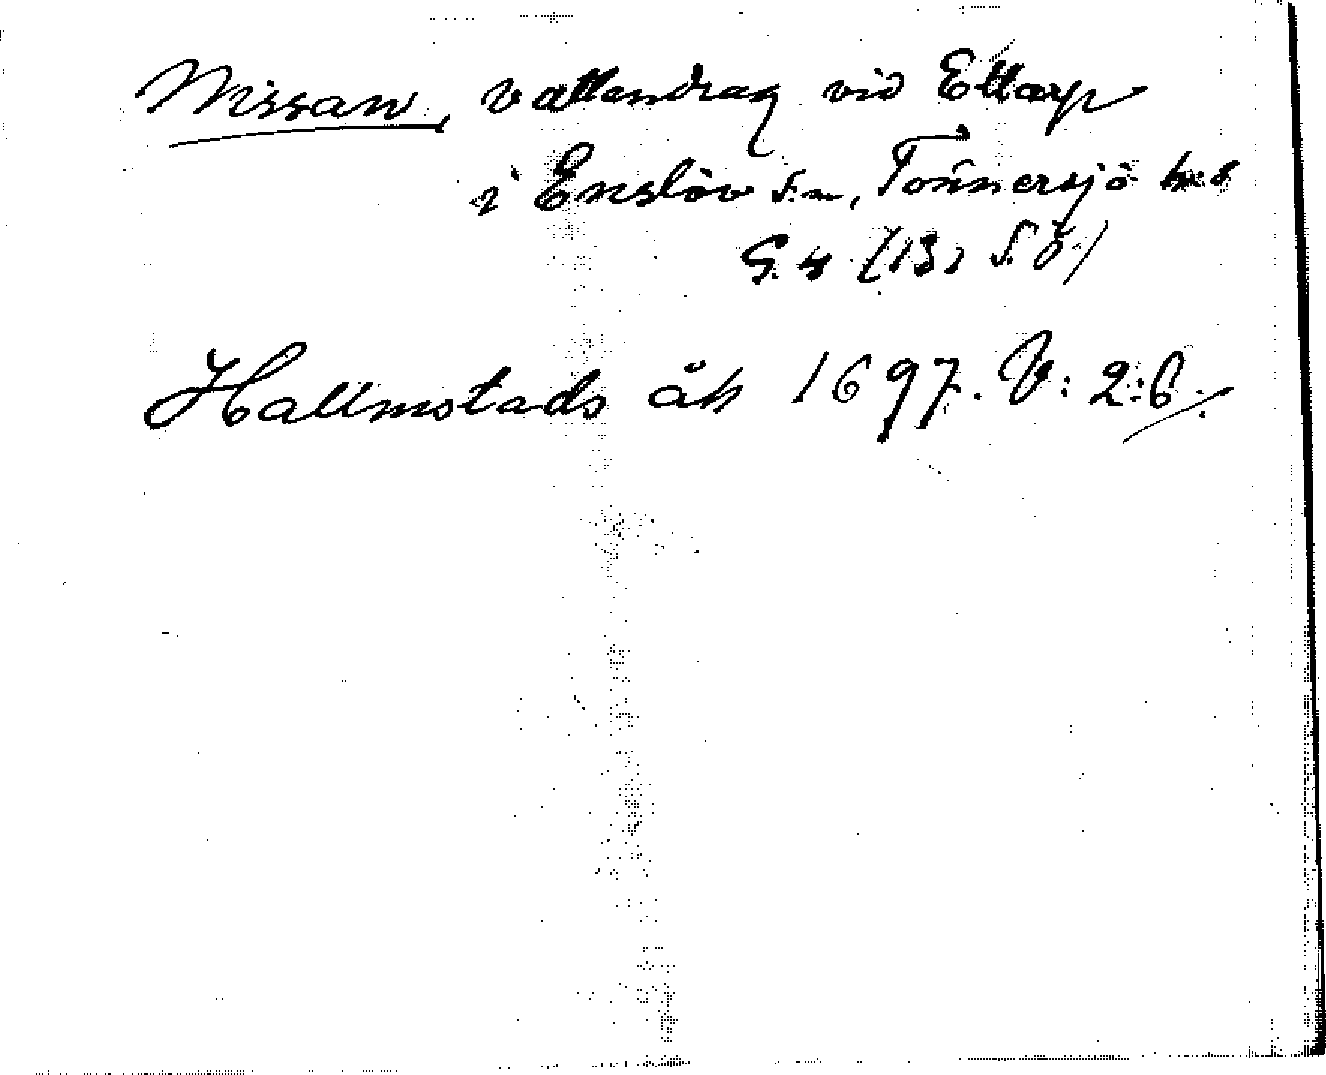 Nissan, vattendrag vid Ettarp
i Enslöv sn, Tönnersjö hd
G. 4 (13, S. Ö.)
Hallmstads åh 1697. V: 2:6.